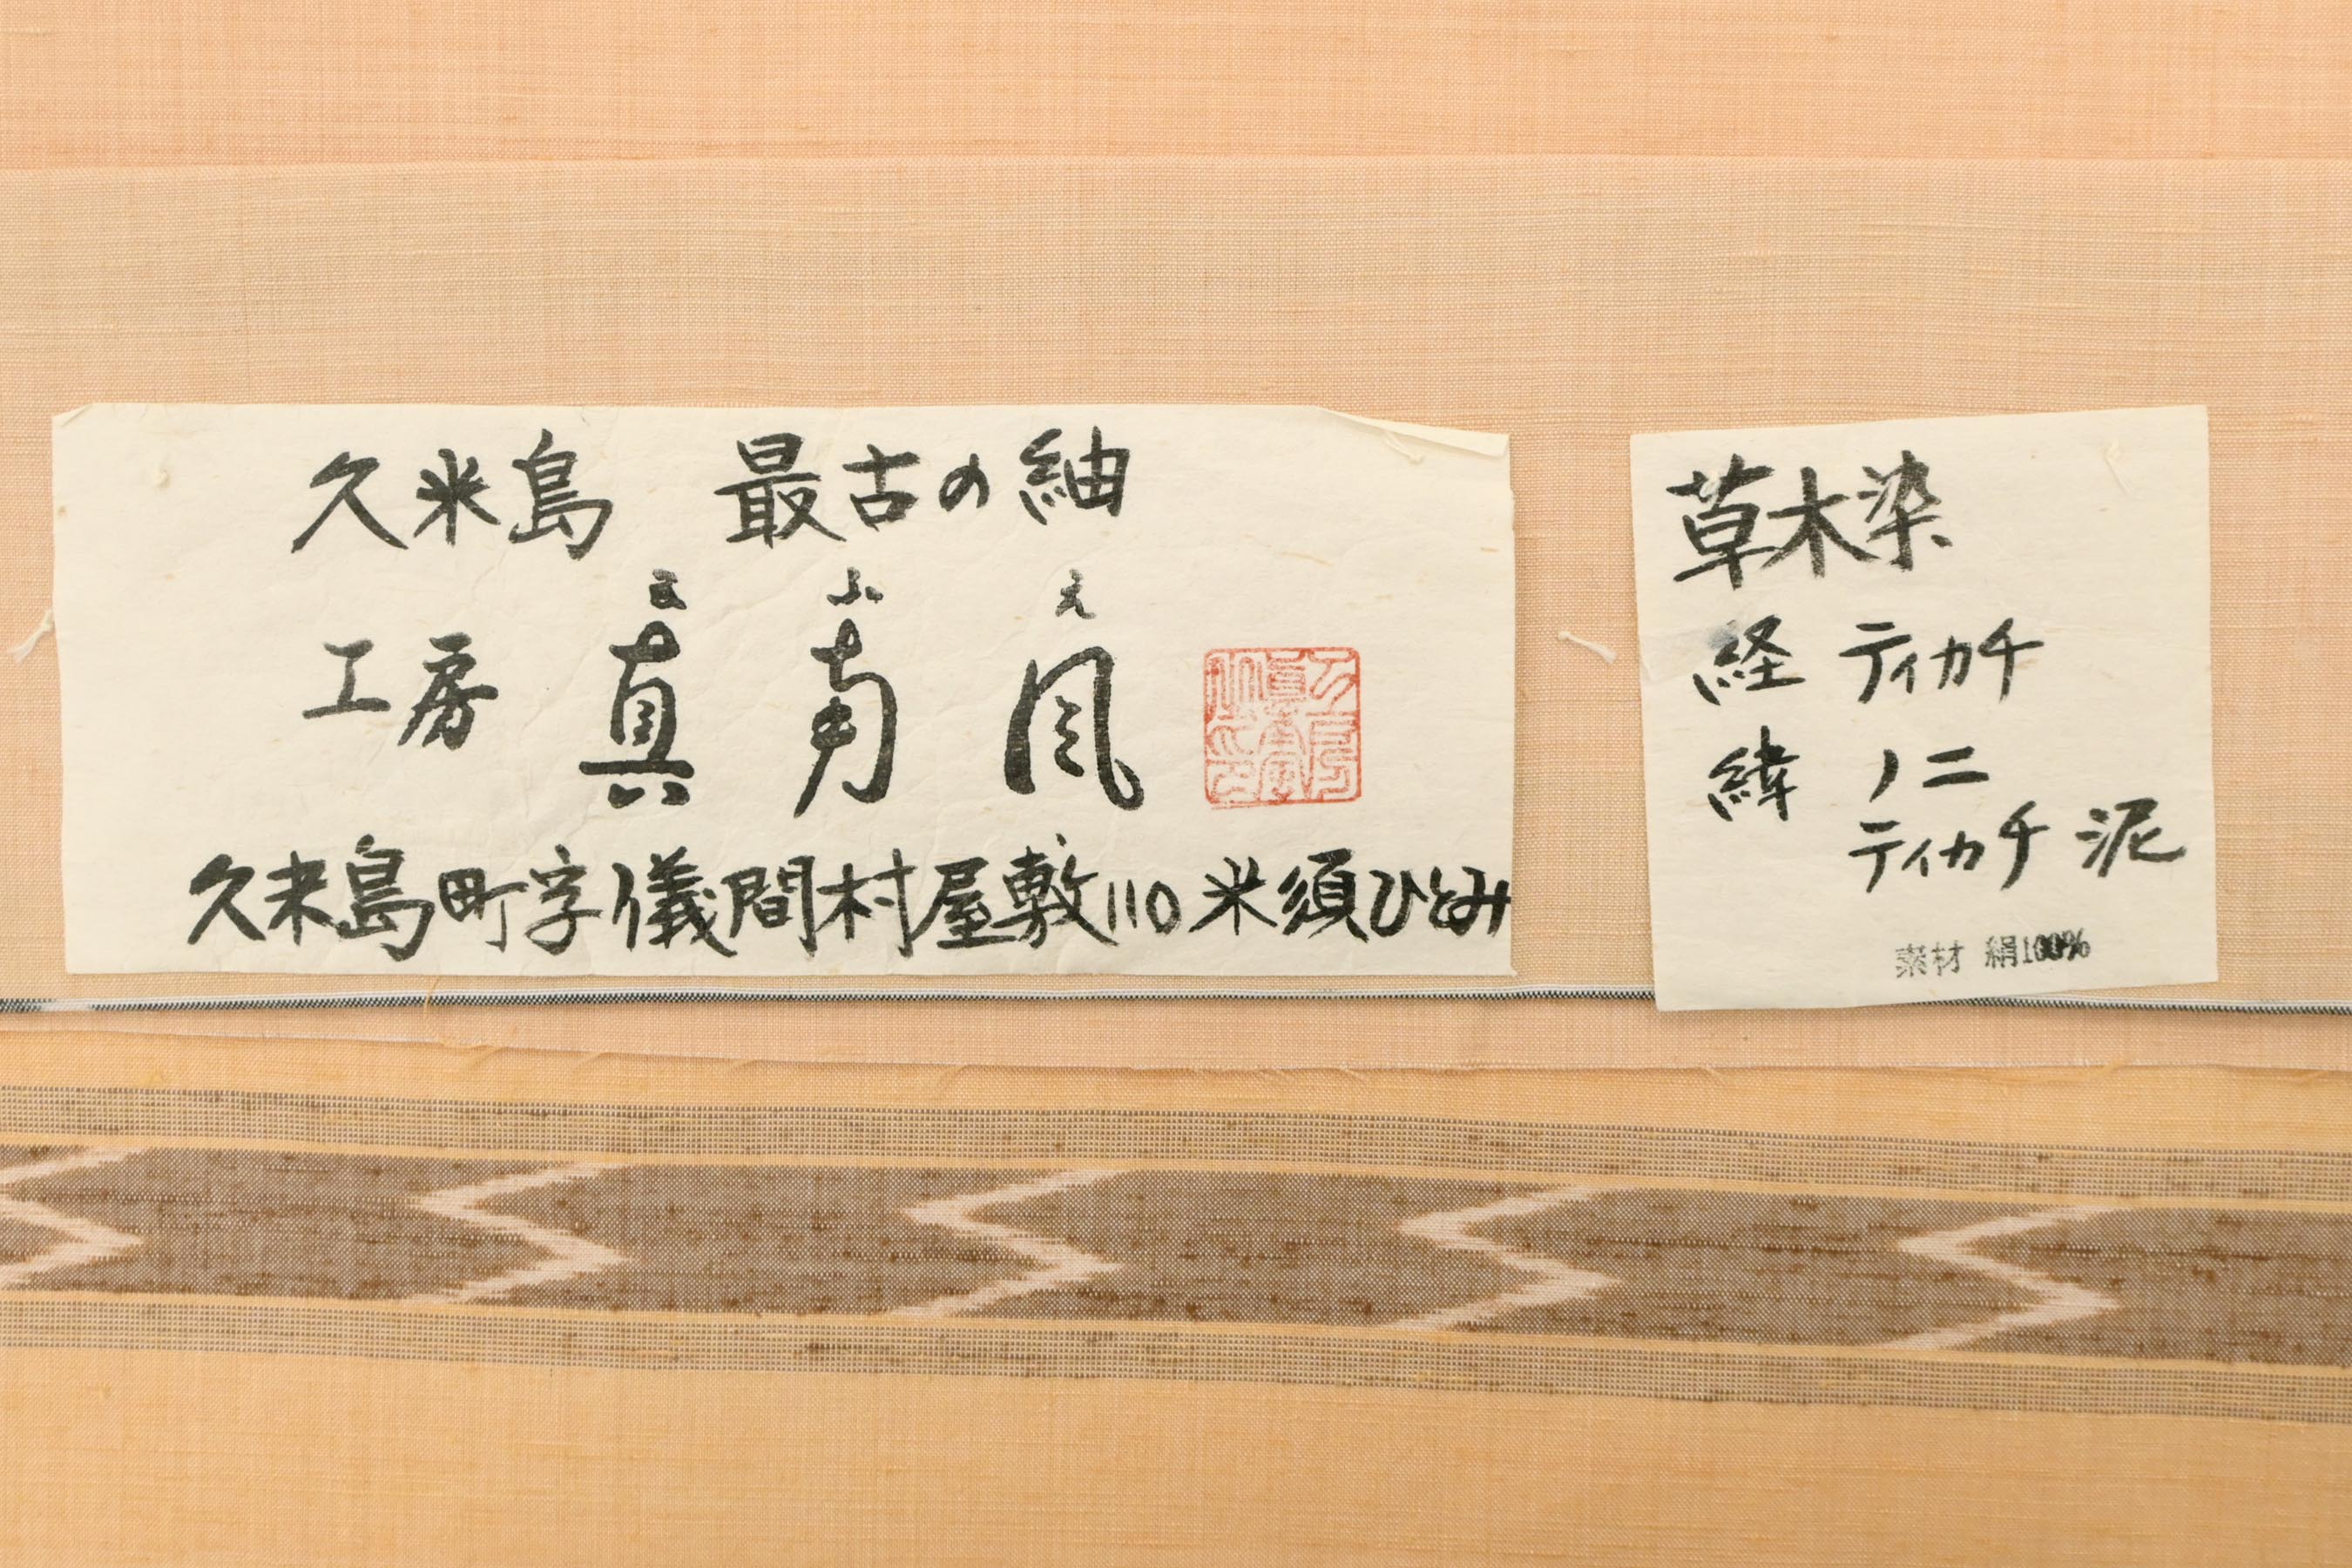 久米島 最古の紬
まふえ
工房 真南風
久米島町字儀間村屋敷110 米須ひとみ
草木染
経 ティカチ
緯 ノニ
ティカチ 泥
素材 絹100%